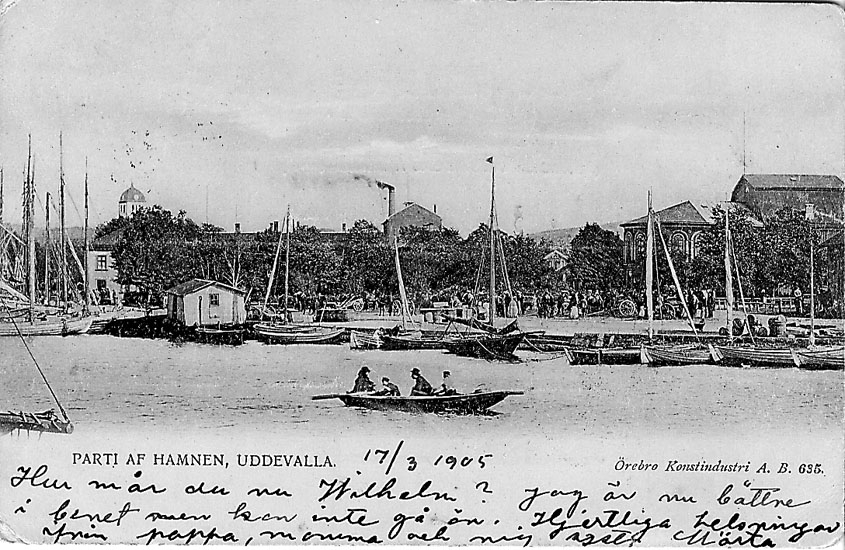 PARTI AF HAMNEN, UDDEVALLA. 17/3 1905 Örebro Konstindustri A. B. 635.
Hur mår du nu Wilhelm? jag är nu bättre
i benet men kan inte gå än. Hjertliga helsningar
från pappa, mamma och mig Märta